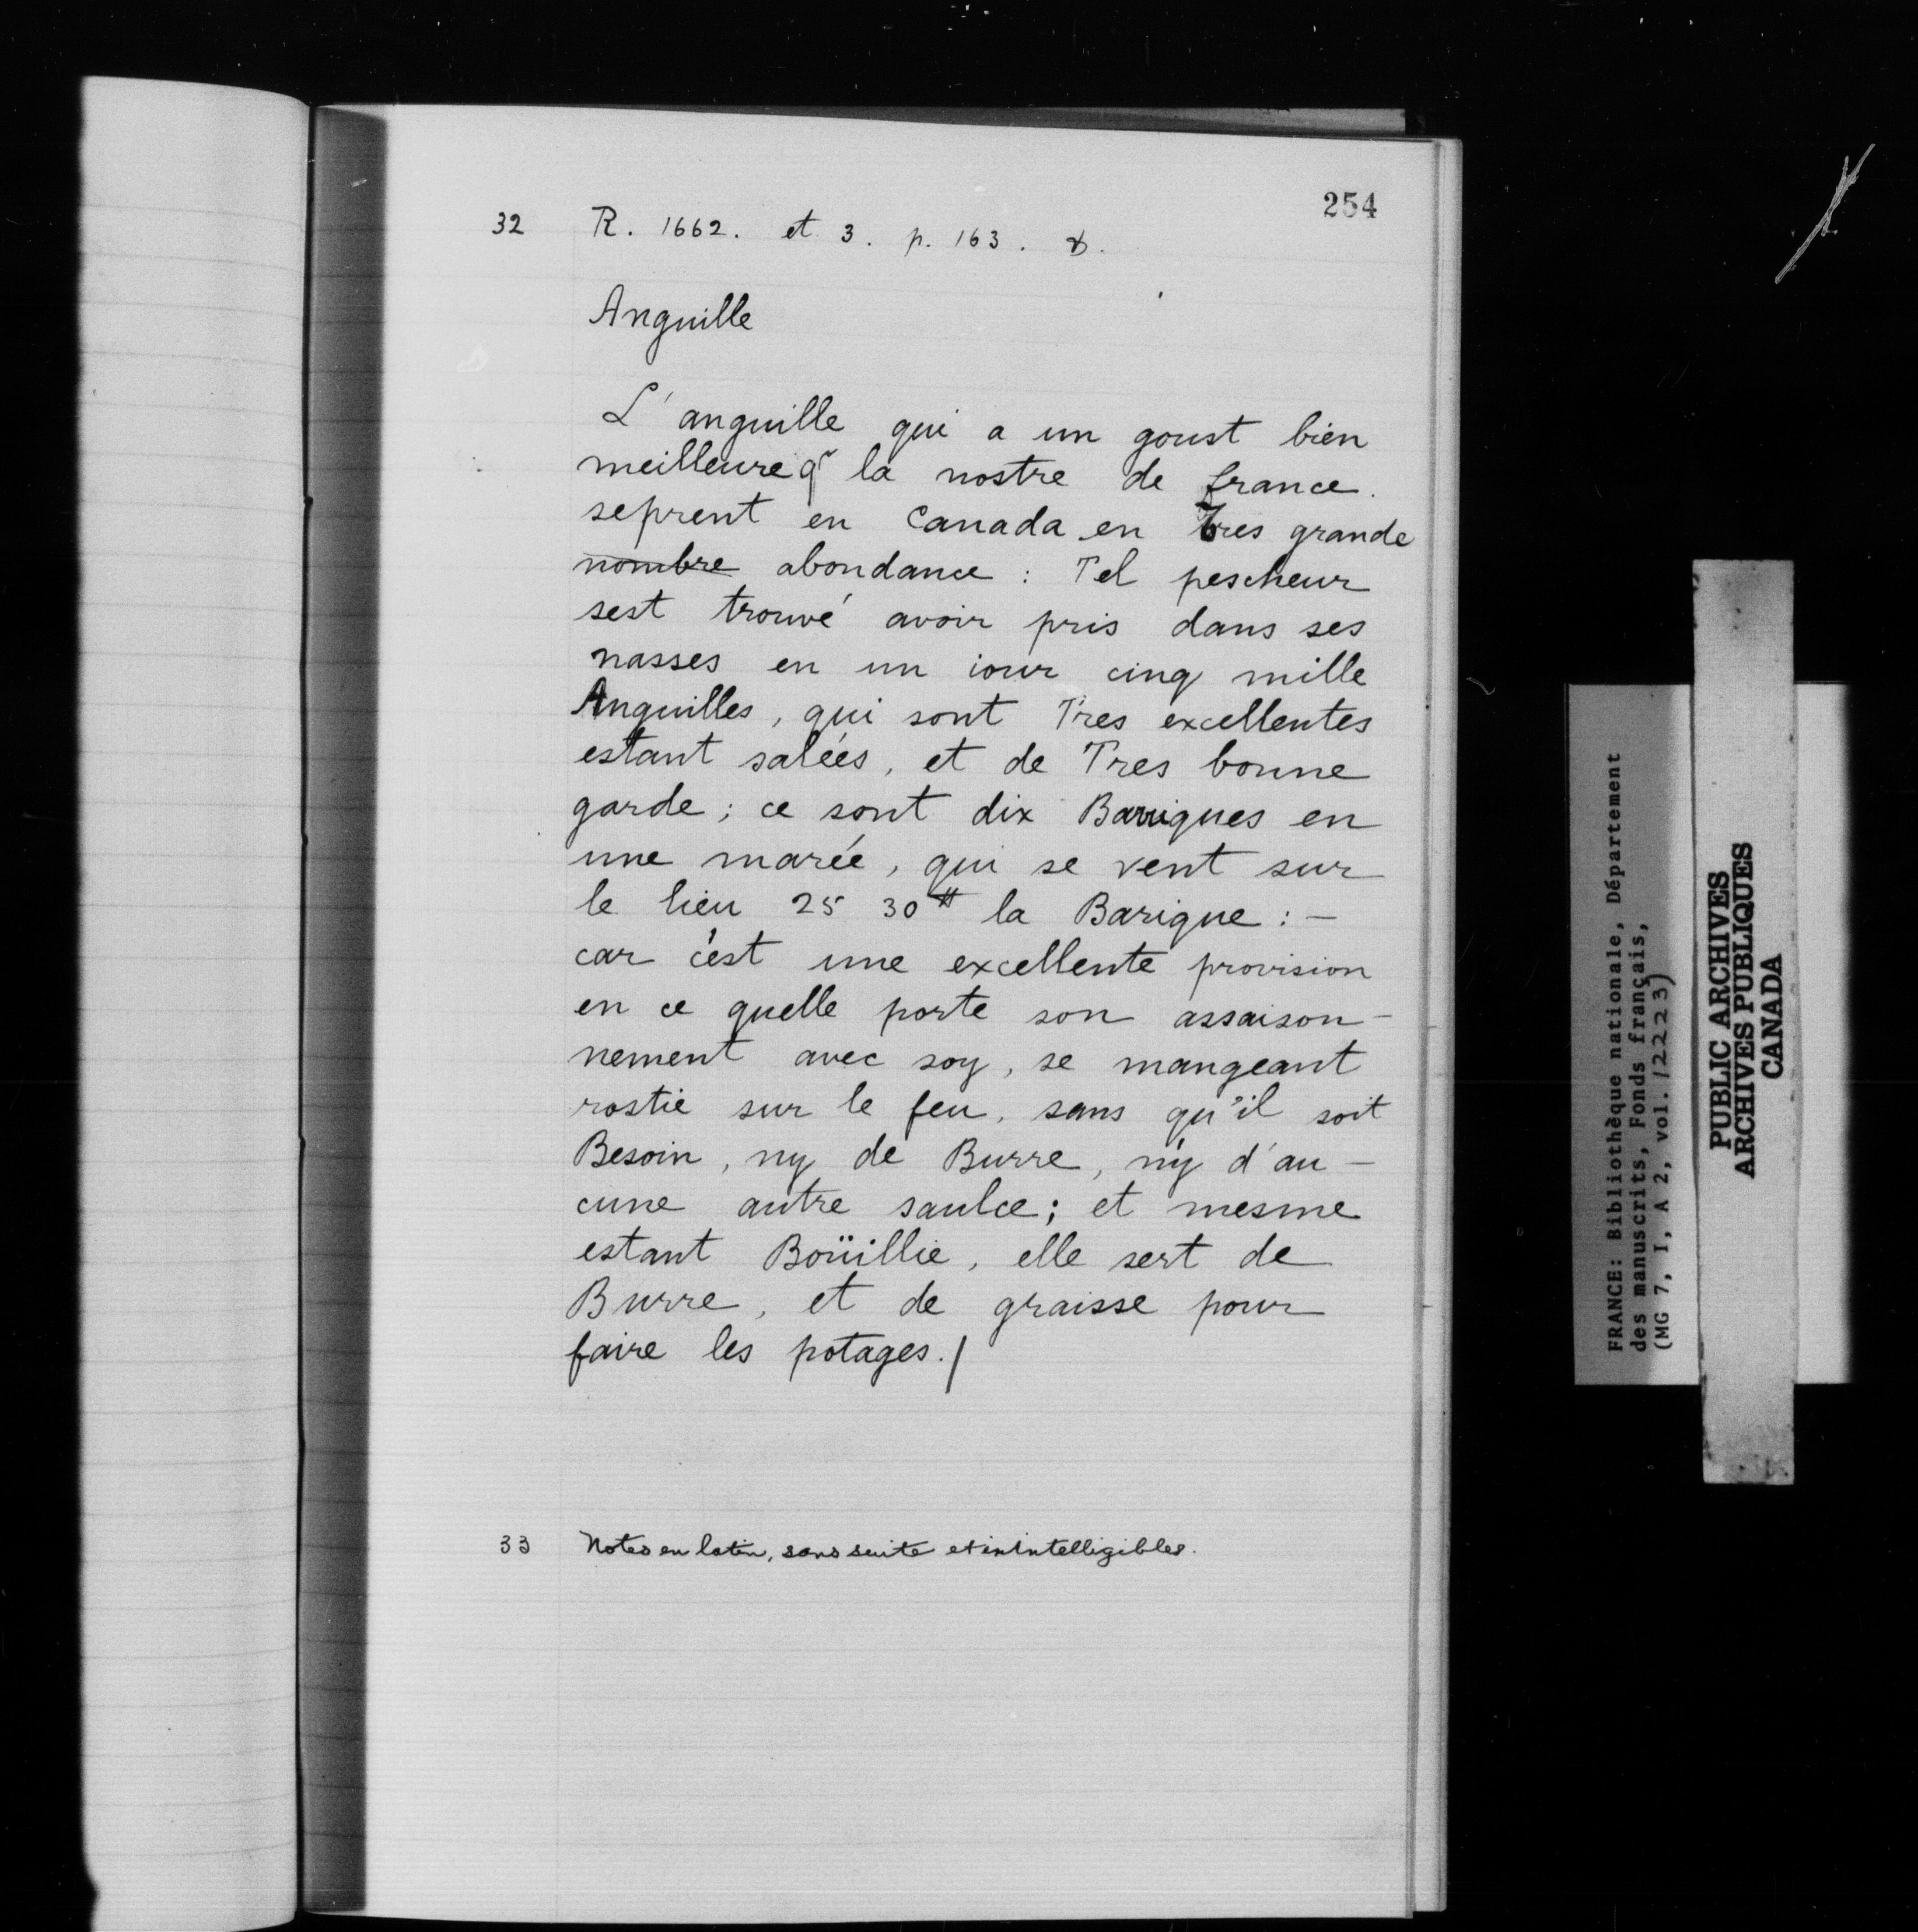 254
32 R. 1662. et 3. p. 163.
Anguille
L'anguille qui a un goust bien
meilleure q̃ la nostre de france.
seprent en Canada en Tres grande
nombre abondance : Tel pescheur
sest trouvé avoir pris dans ses
nasses en un iour cinq mille
Anguilles, qui sont Tres excellentes
estant salées, et de Tres bonne
garde ; ce sont dix Barriques en
une marée, qui se vent sur
le lieu 25 30 ₶ la Barique : —
car c'est une excellente provision
en ce quelle porte son assaison-
nement avec soy, se mangeant
rostie sur le feu, sans qu'il soit
Besoin, ny de Burre, n'y d'au-
cune autre saulce ; et mesme
estant Boüillie, elle sert de
Burre, et de graisse pour
faire les potages./
33 Notes en latin, sans suite et inintelligibles.
FRANCE: Bibliothèque nationale, Département
des manuscrits, Fonds français,
(MG 7, I, A 2, vol. 12223)
PUBLIC ARCHIVES
ARCHIVES PUBLIQUES
CANADA